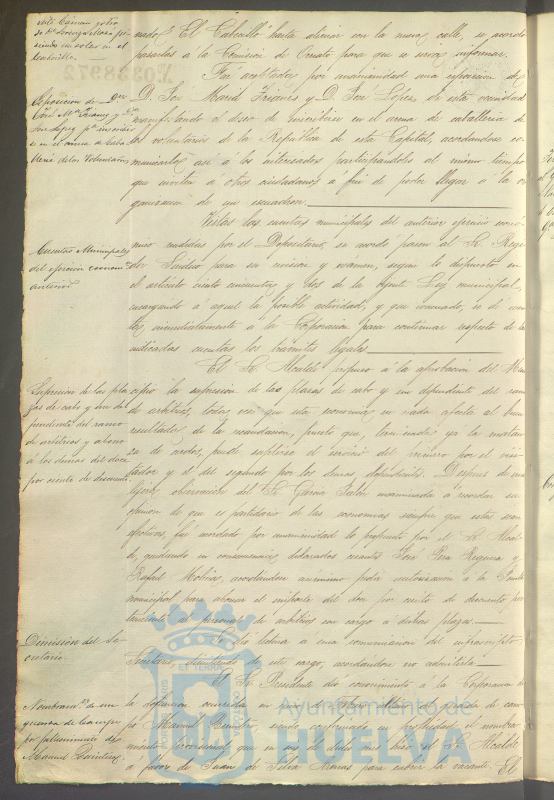 nado, El Cabecillo, hasta alinear con la nueva calle, se acordó
pasarlas a la Comision de Ornato para que se sirva informar.
Nº0338972
Fue aceptada por unanimidad una esposicion de
D. José Maria Friones y D. José Lopez, de esta vecindad
manifestando el deseo de inscribirse en el arma de caballeria de
los voluntarios de la República de esta Capital, acordandose co-
municarlo asi á los interesados participándoles al mismo tiempo
que inviten á otros ciudadanos á fin de poder llegar á la or
ganizacion de un escuadron.
Cuentas Municipales
del ejercicio economº
anterior
Vistas las cuentas municipales del anterior ejercicio econó-
mico rendidas por el Depositario, se acordó pasen al Sr. Regi-
dor Síndico para su revision y exámen, segun lo dispuesto en
el articulo ciento cincuenta y dos de la vigente Ley municipal,
encargando á aquel la posible actividad, y que evacuado, se dé cuen
ta inmediatamente á la Corporacion para continuar respecto de las
indicadas cuentas los trámites legales.
Supresion de las pla
zas de cabo y un de-
pendiente del ramo
de arbitrios y abono
á los demas del doce
por ciento de descuento.
El Sr. Alcalde propuso á la aprobacion del Mu
nicipio la supresion de las plazas de cabo y un dependiente del ramo
de arbitrios, toda vez que esta economia en nada afecta al buen
resultado de la recaudacion, puesto que, terminada ya la matan-
za de cerdos, puede suplirse el servicio del primero por el visi-
tador y el del segundo por los demas dependientes. Despues de una
ligera observacion del Sr. Garcia encaminada á recordar su
opinion de que es partidario de las economias siempre que estas sean
efectivas, fué acordado por unanimidad lo propuesto por el Sr. Alcal-
de, quedando en consecuencia declarados cesantes José Pera Reguera y
Rafael Molina, acordandose asimismo pedir autorizacion á la Junta
municipal para abonar el importe del doce por ciento de descuento per
teneciente al personal de arbitrios con cargo á dichas plazas.
Dimision del Se
cretario
Se dió lectura á una comunicacion del infrascripto
Secretario, dimitiendo de este cargo, acordandose no admitirla.
Nombramtº de un
guarda de campo
por fallecimiento de
Manuel Quintero
El Sr. Presidente dió conocimiento á la Corporacion de
la defuncion ocurrida en del guarda de cam-
po Manuel Quintero, siendo confirmado en propiedad el nombra-
miento provisional que en uso de hizo el Sr. Alcalde
á favor de Juan de Silva para cubrir la vacante. El
Ayuntamiento de
HUELVA